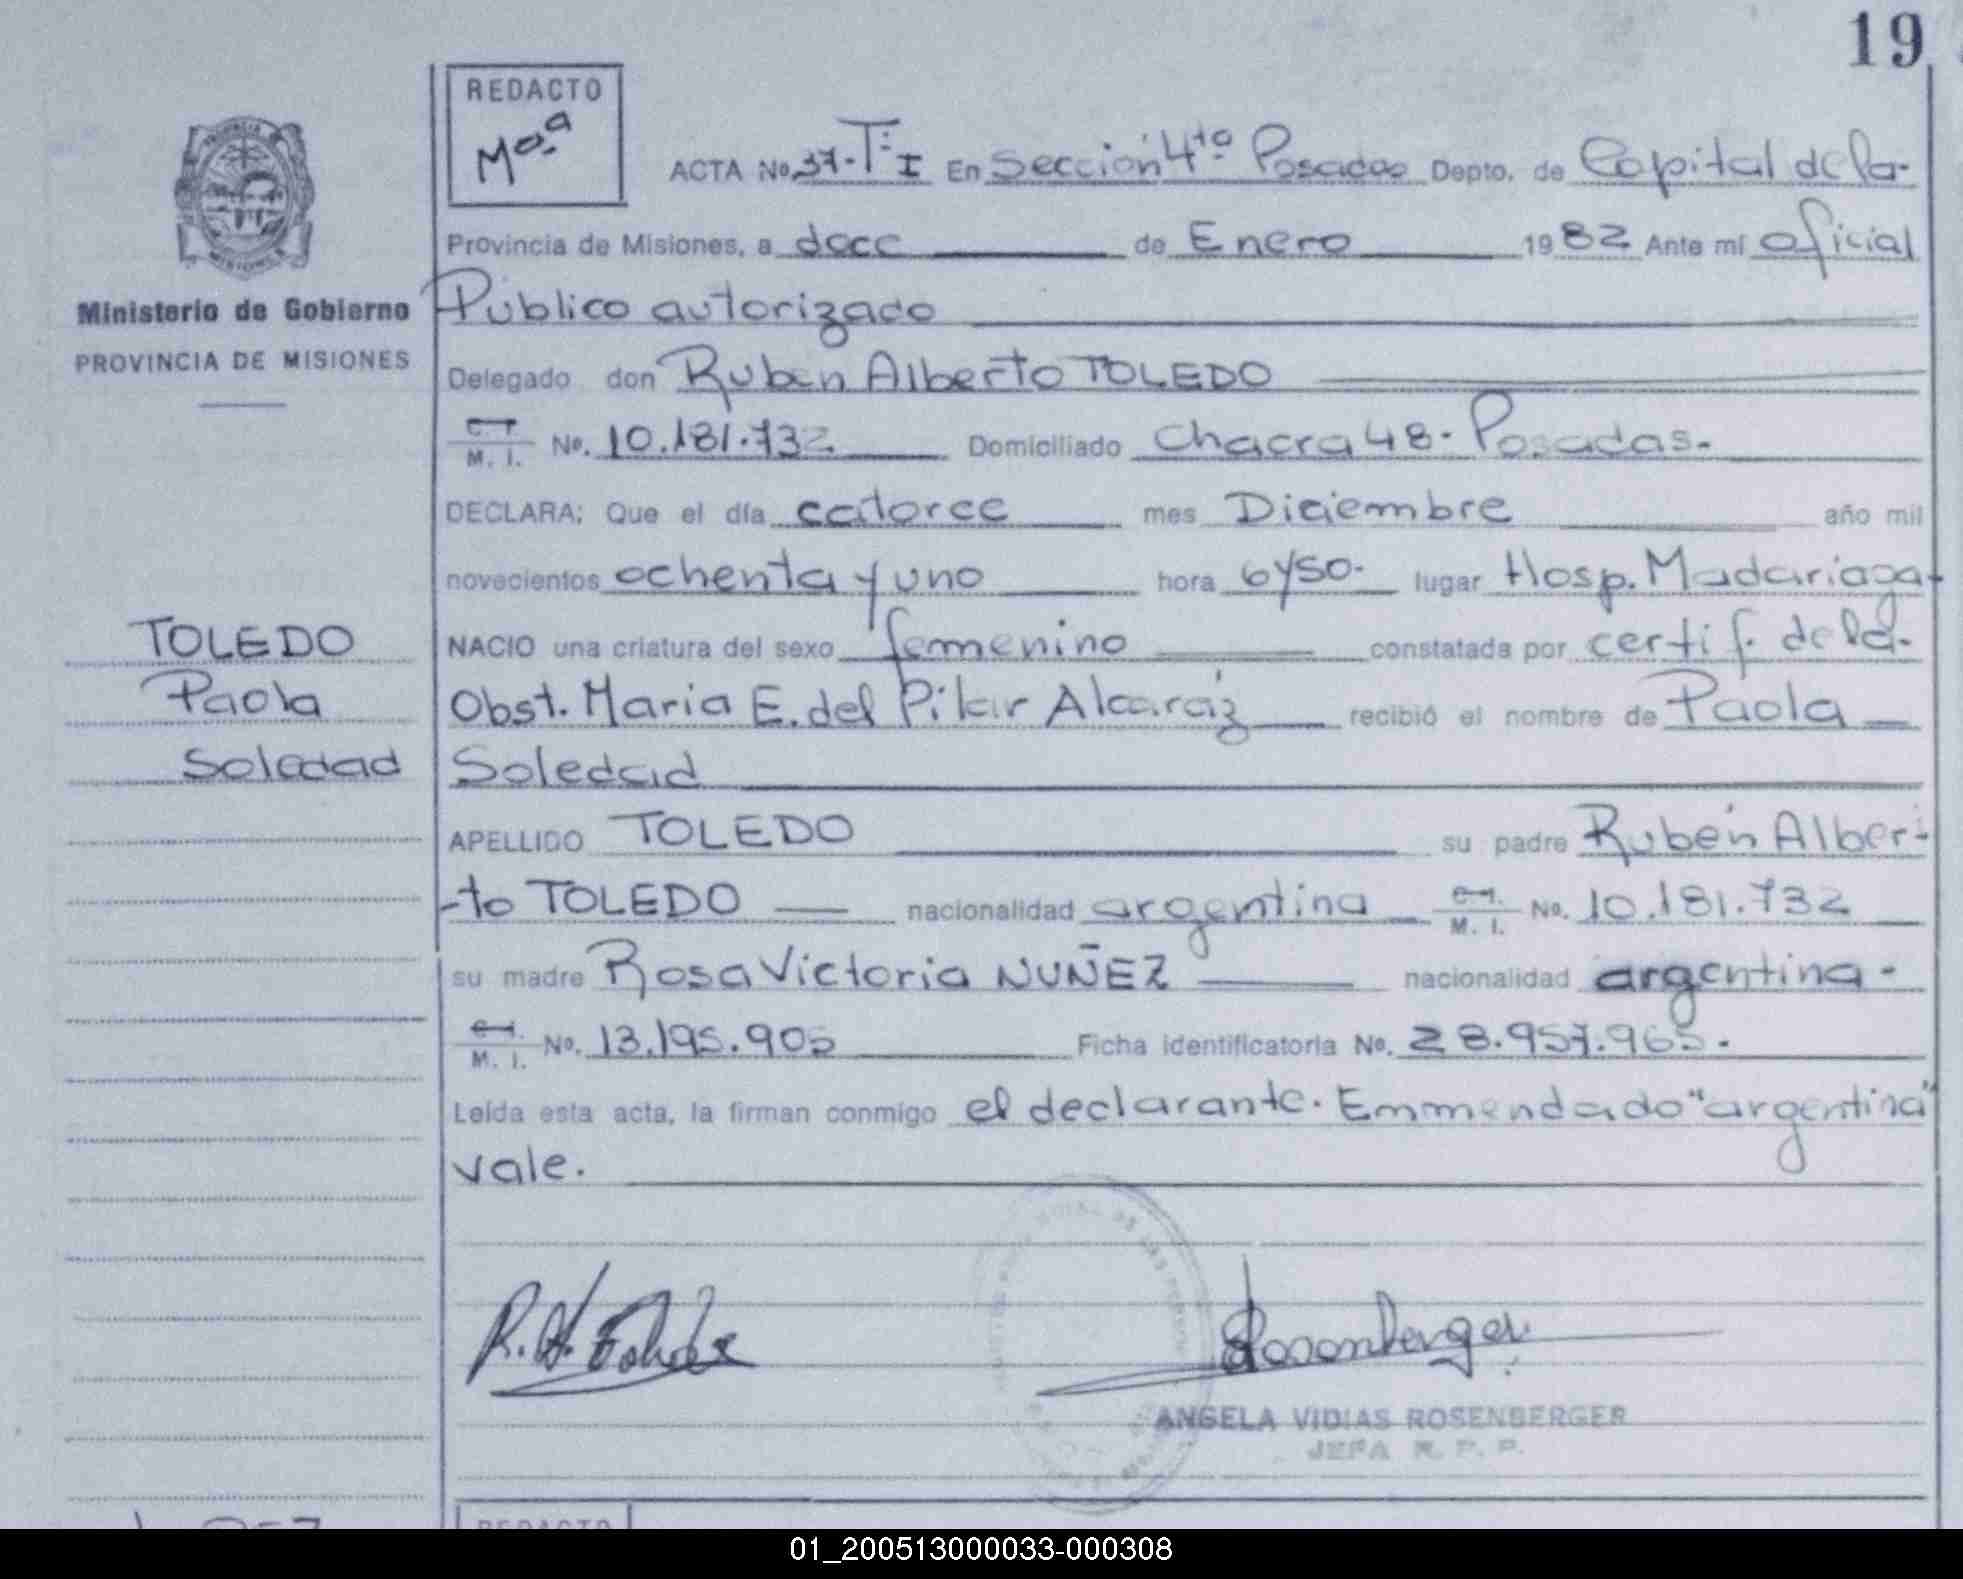 19
REDACTO
Mª.ª
ACTA No. 37-Tº I En Sección 4ta Posadas Depto. de Capital de la-
Provincia de Misiones, a doce de Enero 1982 Ante mí oficial
Público autorizado
Delegado don Ruben Alberto TOLEDO
M. I. No. 10.181.732 Domiciliado Chacra 48- Posadas-
DECLARA: Que el día catorce mes Diciembre año mil
novecientos ochenta y uno hora 6y50- lugar Hosp. Madariaga-
NACIO una criatura del sexo femenino constatada por certif. de la-
Obst. Maria E. del Pilar Alcaráz recibió el nombre de Paola
Soledad
APELLIDO TOLEDO su padre Rubén Alber-
-to TOLEDO nacionalidad argentina M. I. No. 10.181.732
su madre Rosa Victoria NUÑEZ nacionalidad argentina-
M. I. No. 13.195.905 Ficha identificatoria No. 28.957.965.
Leída esta acta, la firman conmigo el declarante. Emmendado "argentina"
vale.
Ministerio de Gobierno
PROVINCIA DE MISIONES
TOLEDO
Paola
Soledad
R. A. Toledo
Rosenberger
ANGELA VIDIAS ROSENBERGER
JEFA R. P. P.
REDACTO
01_200513000033-000308